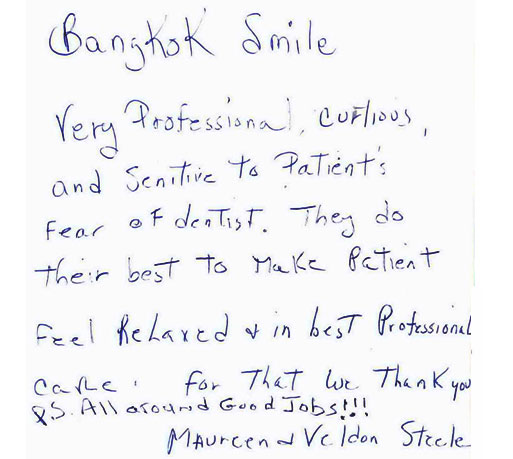 Bangkok Smile
Very Professional, curtious,
and Senitive to Patient's
Fear of dentist. They do
their best to Make Patient
Feel Relaxed & in best Professional
care. for That We Thank you
P.S. All around Good Jobs!!!
Maureen & Veldon Steele